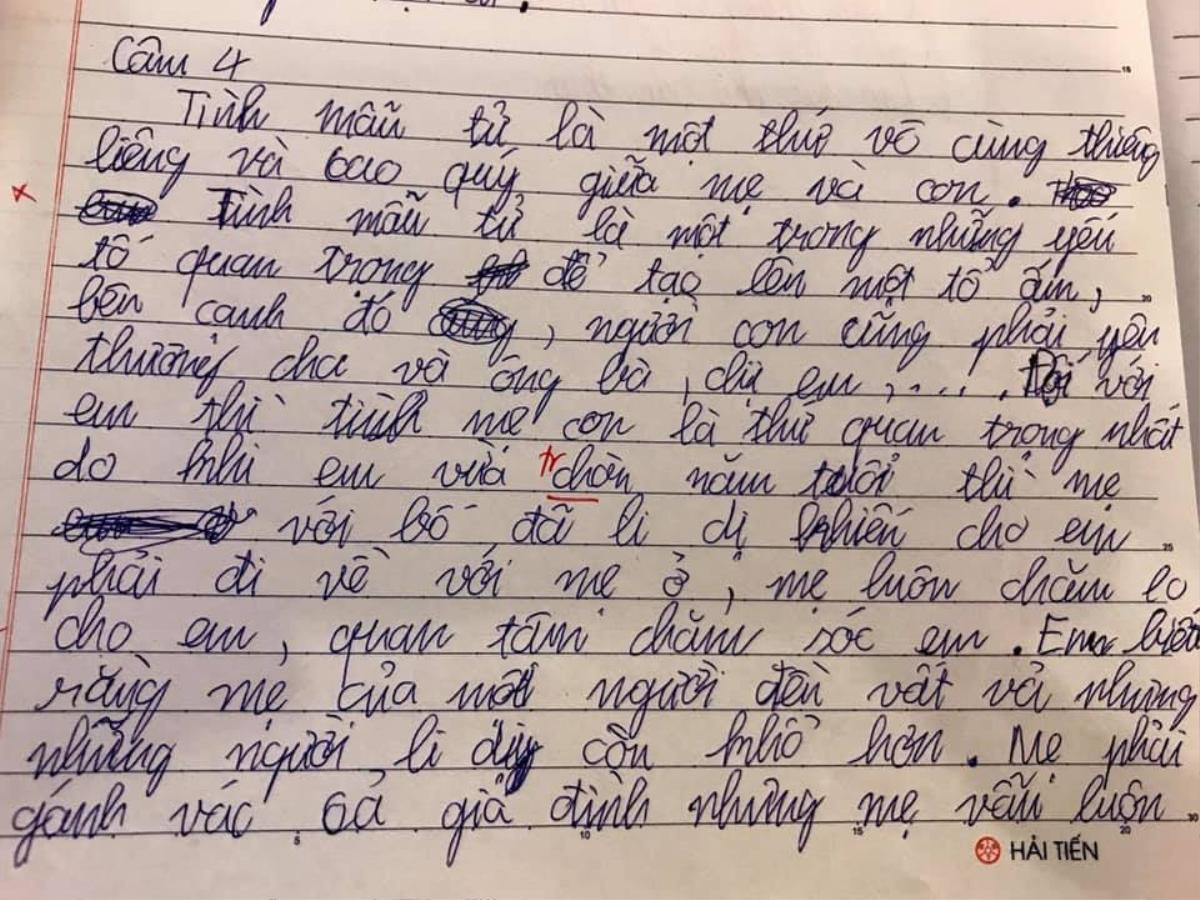 Câu 4
Tình mẫu tử là một thứ vô cùng thiêng
liêng và cao quý giữa mẹ và con.
Tình mẫu tử là một trong những yếu
tố quan trọng để tạo lên một tổ ấm,
bên cạnh đó , người con cũng phải yêu
thương cha và ông bà, chị em,..... Đối với
em thì tình mẹ con là thứ quan trọng nhất
do khi em vừa tr chòn năm tuổi thì mẹ
với bố đã li dị khiến cho em
phải đi về với mẹ ở, mẹ luôn chăm lo
cho em, quan tâm chăm sóc em. Em biết
rằng mẹ của một người đều vất vả nhưng
những người li dị còn khổ hơn. Mẹ phải
gánh vác cả gia đình nhưng mẹ vẫn luôn
HẢI TIẾN